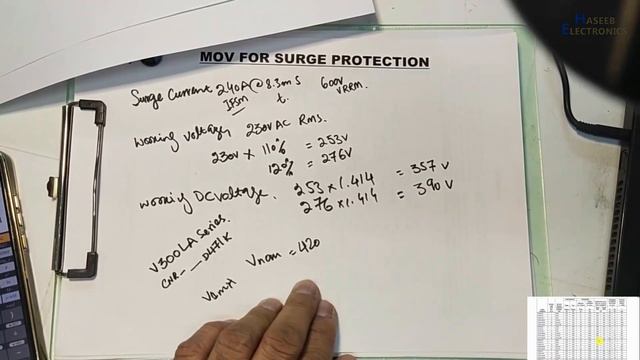 HASEEB
ELECTRONICS
MOV FOR SURGE PROTECTION
Surge Current 240A @ 8.3ms 600V
IFSM t. VRRM.
Working Voltage, 230V AC Rms.
230V × 110% = 253V
12% = 276V
Working DC Voltage. 253 × 1.414 = 357V
276 × 1.414 = 390V
V300LA Series.
CNR-__D471K
Vnom = 420